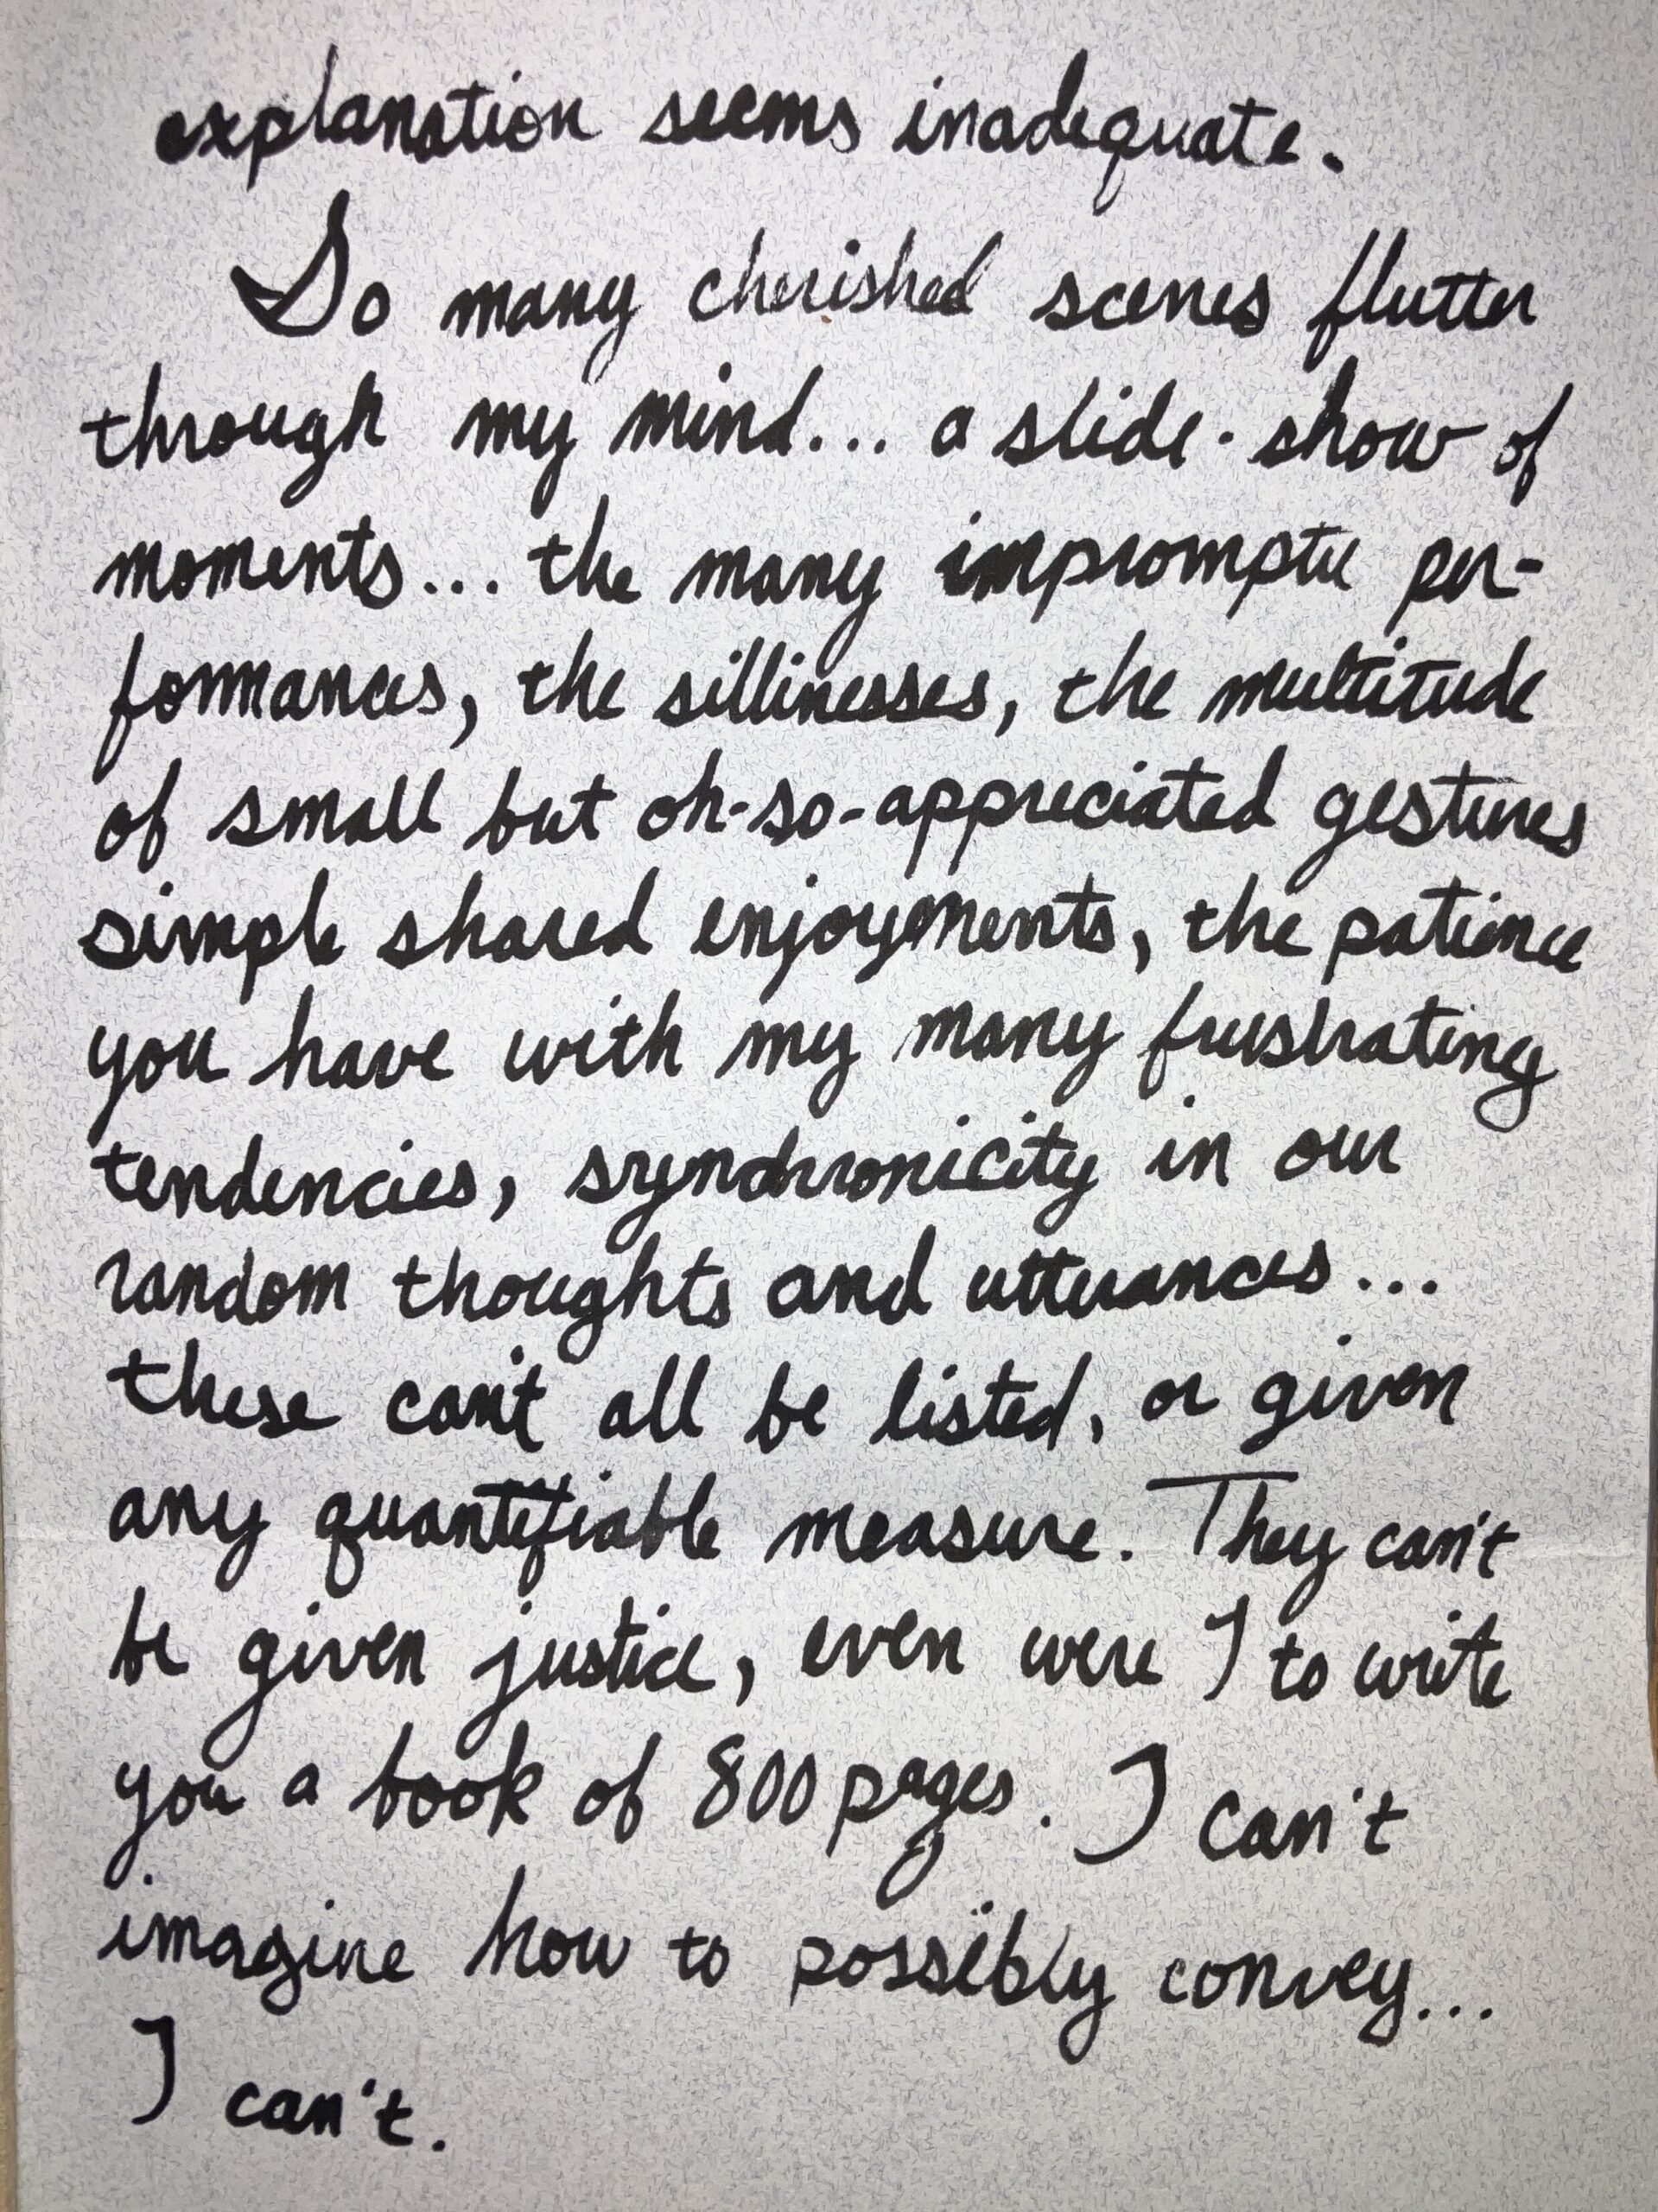 explanation seems inadequate.
So many cherished scenes flutter
through my mind... a slide-show of
moments... the many impromptu per-
formances, the sillinesses, the multitude
of small but oh-so-appreciated gestures
simple shared enjoyments, the patience
you have with my many frustrating
tendencies, synchronicity in our
random thoughts and utterances...
these can't all be listed, or given
any quantifiable measure. They can't
be given justice, even were I to write
you a book of 800 pages. I can't
imagine how to possibly convey...
I can't.